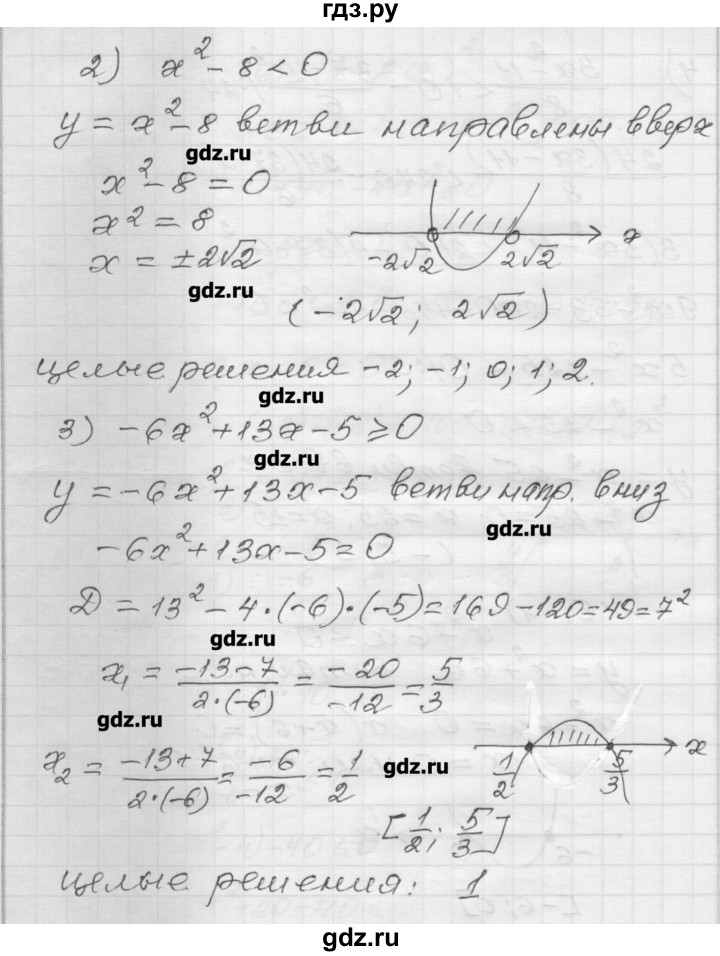 гдз.ру
2) x² - 8 < 0
y = x² - 8 ветви направлены вверх
gdz.ru
x² - 8 = 0
x² = 8
x = ±2√2
-2√2 2√2 x
gdz.ru
(-2√2; 2√2)
целые решения -2; -1; 0; 1; 2.
gdz.ru
3) -6x² + 13x - 5 ≥ 0
gdz.ru
y = -6x² + 13x - 5 ветви напр. вниз
gdz.ru
-6x² + 13x - 5 = 0
Д = 13² - 4·(-6)·(-5) = 169 - 120 = 49 = 7²
gdz.ru
x₁ = (-13-7)/(2·(-6)) = -20/-12 = 5/3
gdz.ru
x₂ = (-13+7)/(2·(-6)) = -6/-12 = 1/2
gdz.ru
1/2 5/3 x
[1/2; 5/3]
gdz.ru
целые решения: 1
gdz.ru